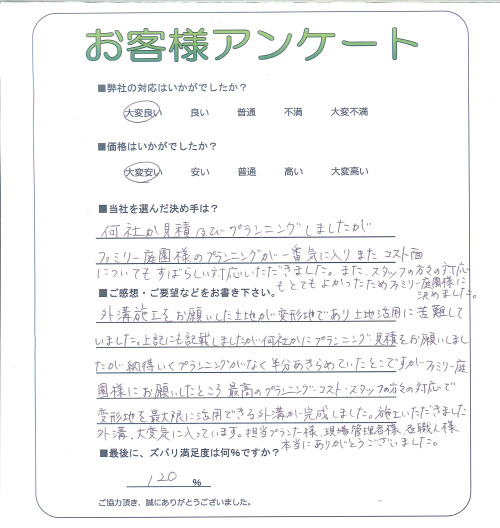 お客様アンケート
■弊社の対応はいかがでしたか？
大変良い 良い 普通 不満 大変不満
■価格はいかがでしたか？
大変安い 安い 普通 高い 大変高い
■当社を選んだ決め手は？
何社か見積及びプランニングしましたが
ファミリー庭園様のプランニングが一番気に入りまたコスト面
についてもすばらしい対応いただきました。また、スタッフの方々の対応
もとてもよかったためファミリー庭園様に
決めました。
■ご感想・ご要望などをお書き下さい。
外溝施工をお願いした土地が変形地であり土地活用に苦難して
いました。上記にも記載しましたが何社かにプランニング見積をお願いしまし
たが納得いくプランニングがなく半分あきらめていたとこですがファミリー庭
園様にお願いしたところ最高のプランニング・コスト・スタッフの方々の対応で
変形地を最大限に活用できる外溝が完成しました。施工いただきました
外溝、大変気に入っています。担当プランナー様、現場管理者様、各職人様
本当にありがとうございました。
■最後に、ズバリ満足度は何％ですか？
120 %
ご協力頂き、誠にありがとうございました。